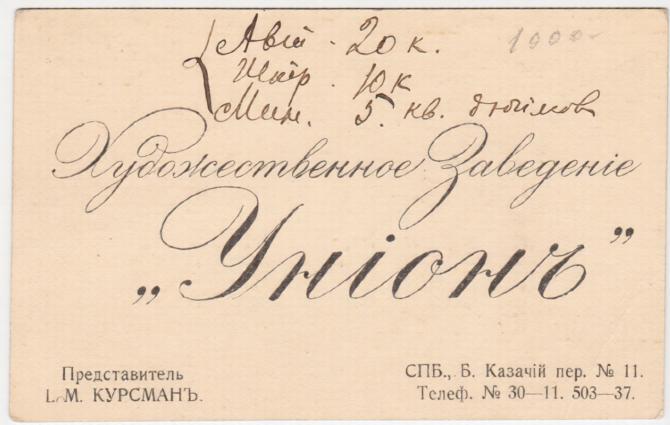 Авт. - 20 к. 1000-
Штр. 10 к
Мин. 5. кв. дюймов
Художественное Заведеніе
„Уніонъ”
Представитель
І. М. КУРСМАНЪ.
СПБ., Б. Казачій пер. № 11.
Телеф. № 30—11. 503—37.